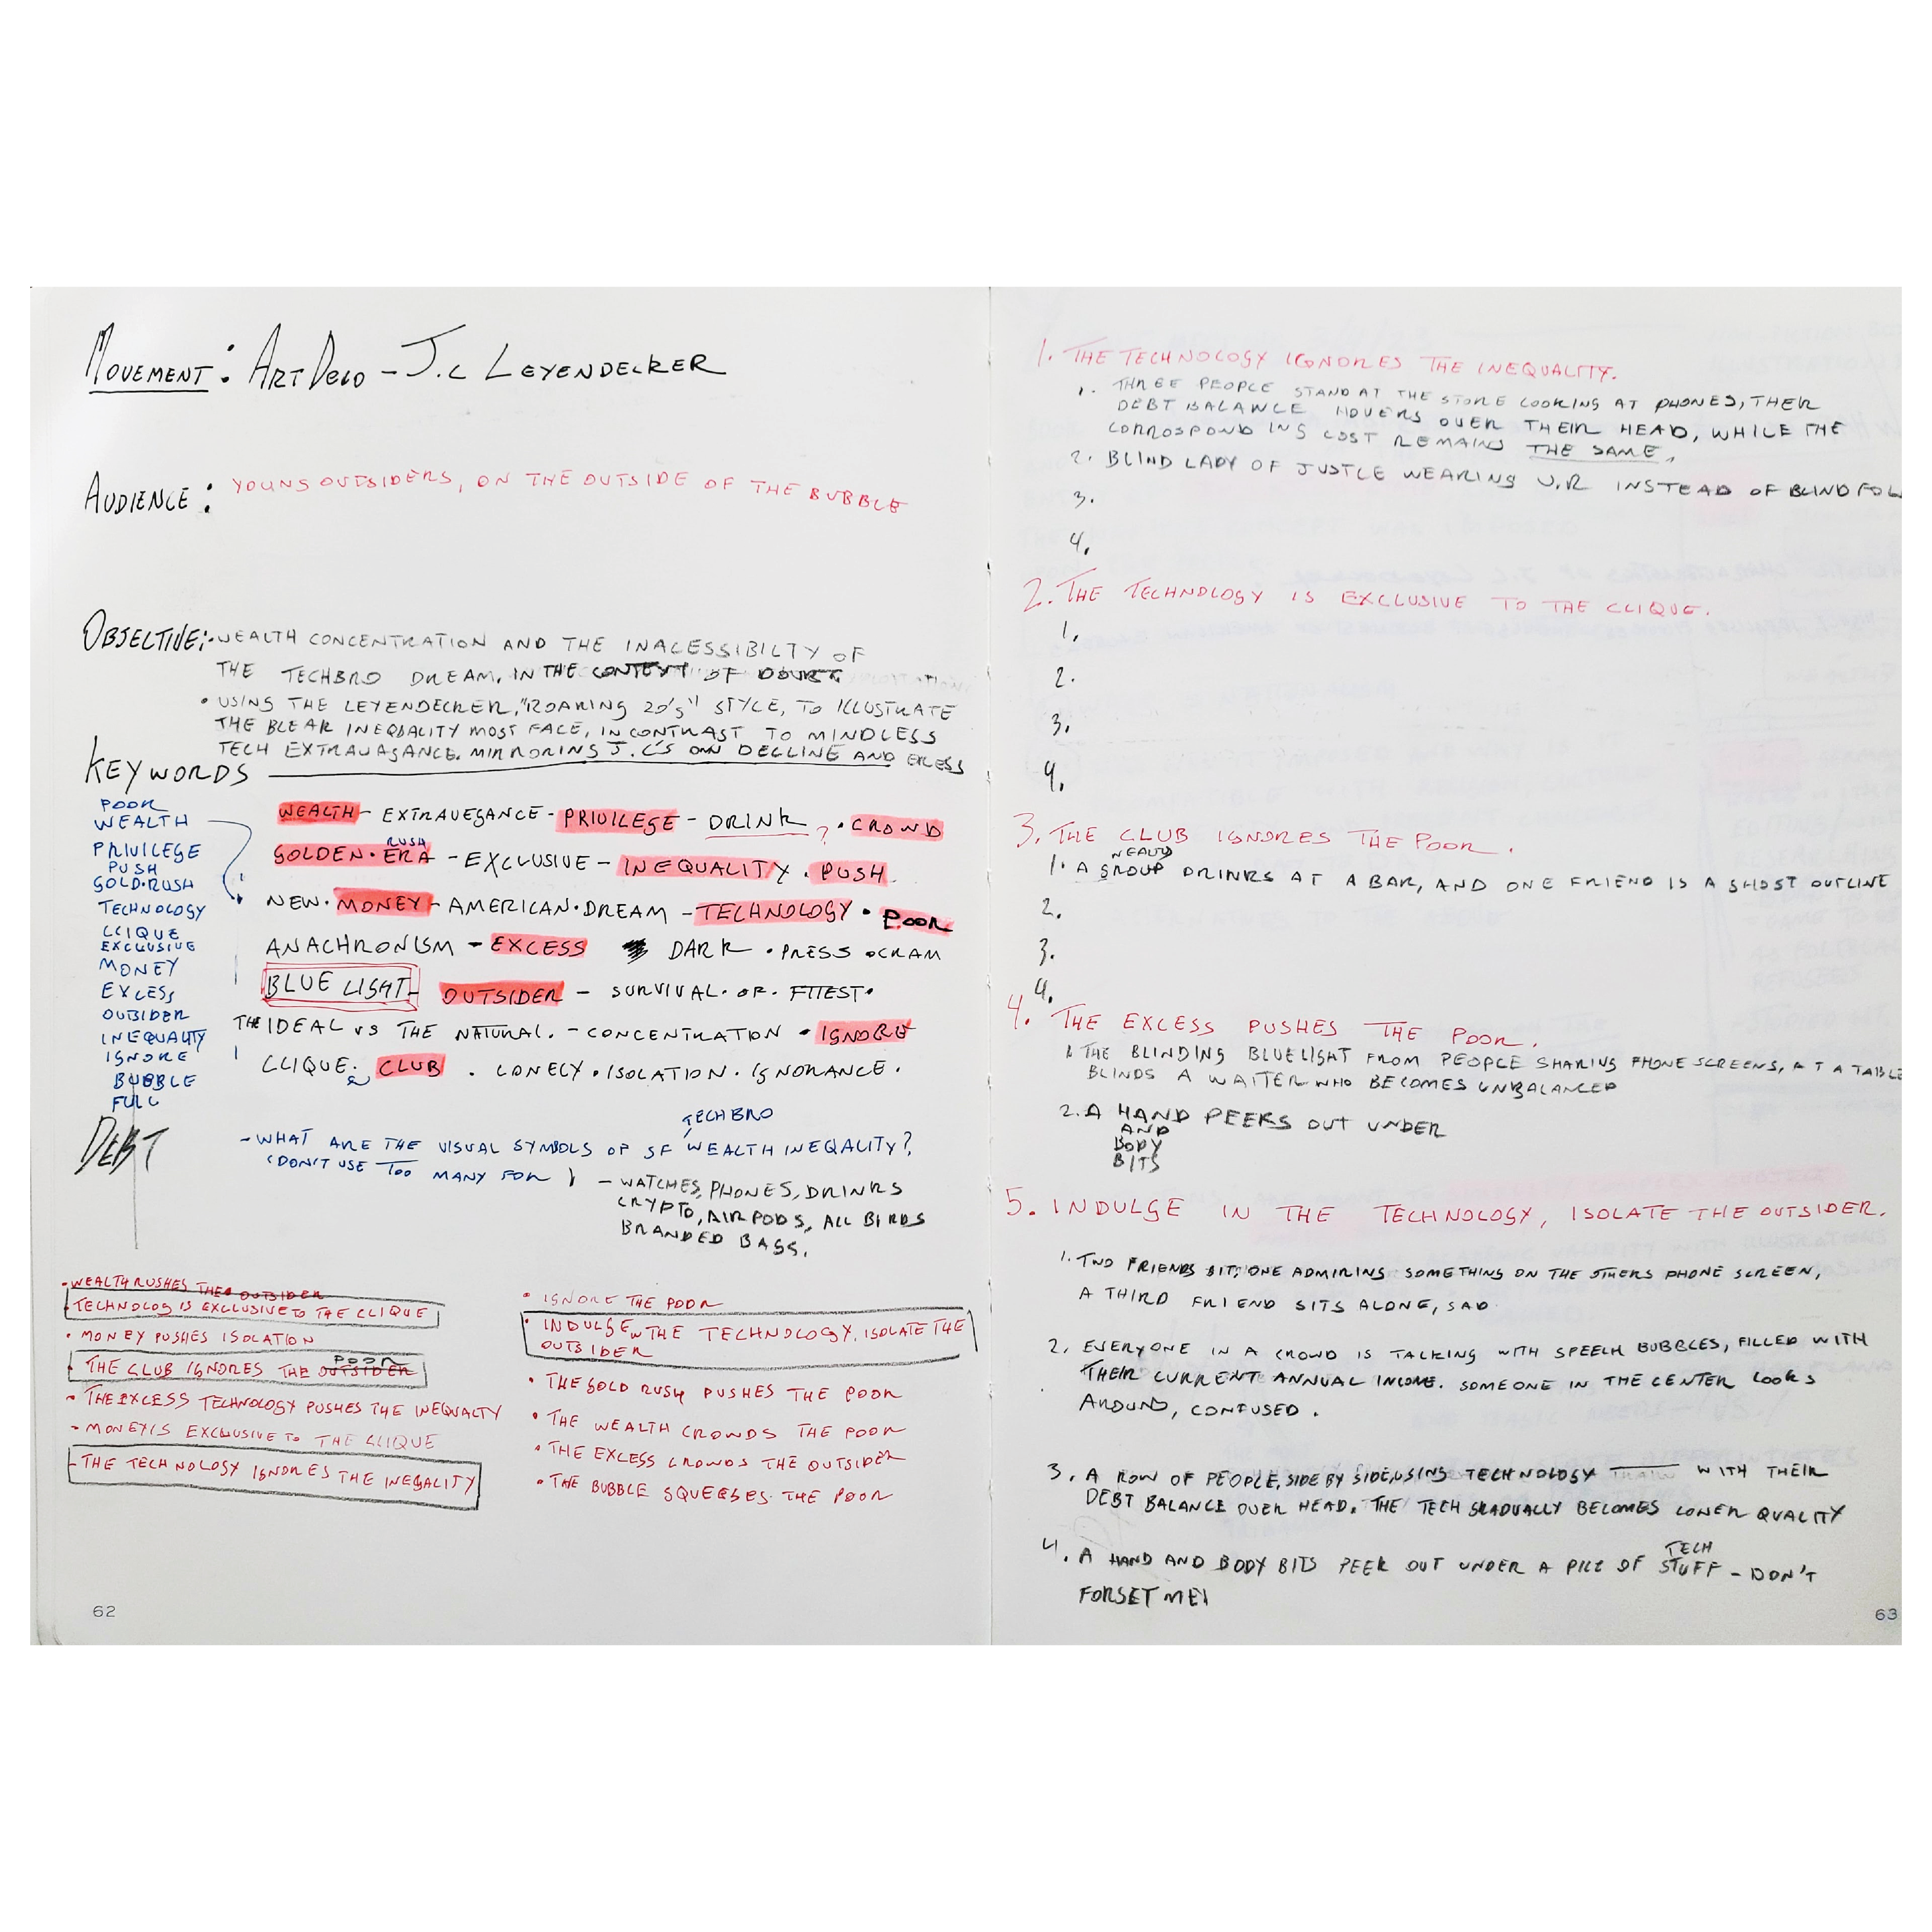 MOVEMENT: ART DECO - J.C LEYENDECKER
AUDIENCE: YOUNG OUTSIDERS, ON THE OUTSIDE OF THE BUBBLE
OBJECTIVE: • WEALTH CONCENTRATION AND THE INACESSIBILTY OF
THE TECHBRO DREAM. IN THE CONTEXT OF DOUBT
• USING THE LEYENDECKER, "ROARING 20'S" STYLE, TO ILLUSTRATE
THE BLEAK INEQUALITY MOST FACE, IN CONTRAST TO MINDLESS
TECH EXTRAVAGANCE. MIRRORING J.C'S OWN DECLINE AND EXCESS
KEYWORDS
POOR
WEALTH
PRIVILEGE
PUSH
GOLD·RUSH
TECHNOLOGY
CLIQUE
EXCLUSIVE
MONEY
EXCESS
OUTSIDER
INEQUALITY
IGNORE
BUBBLE
FULL
WEALTH - EXTRAVEGANCE - PRIVILEGE - DRINK ? • CROWD
RUSH
GOLDEN·ERA - EXCLUSIVE - INEQUALITY • PUSH
NEW·MONEY - AMERICAN·DREAM - TECHNOLOGY • POOR
ANACHRONISM - EXCESS DARK • PRESS • CRAM
BLUE LIGHT - OUTSIDER - SURVIVAL·OF·FITTEST•
THE IDEAL VS THE NATURAL. - CONCENTRATION • IGNORE
CLIQUE. CLUB . LONELY • ISOLATION • IGNORANCE.
DEBT
TECHBRO
- WHAT ARE THE VISUAL SYMBOLS OF SF WEALTH INEQALITY?
(DON'T USE TOO MANY FOR )
- WATCHES, PHONES, DRINKS
CRYPTO, AIRPODS, ALL BIRDS
BRANDED BAGS.
• WEALTH RUSHES THE OUTSIDER
• TECHNOLOGY IS EXCLUSIVE TO THE CLIQUE
• MONEY PUSHES ISOLATION
POOR
• THE CLUB IGNORES THE OUTSIDER
• THE EXCESS TECHNOLOGY PUSHES THE INEQUALTY
- MONEY IS EXCLUSIVE TO THE CLIQUE
- THE TECHNOLOGY IGNORES THE INEQALITY
• IGNORE THE POOR
• INDULGE IN THE TECHNOLOGY. ISOLATE THE
OUTSIDER
• THE GOLD RUSH PUSHES THE POOR
• THE WEALTH CROWDS THE POOR
• THE EXCESS CROWDS THE OUTSIDER
• THE BUBBLE SQUEESES THE POOR
62
1. THE TECHNOLOGY IGNORES THE INEQUALITY.
1. THREE PEOPLE STAND AT THE STORE LOOKING AT PHONES, THEIR
DEBT BALANCE HOVERS OVER THEIR HEAD, WHILE THE
CORROSPONDING COST REMAINS THE SAME.
2. BLIND LADY OF JUSTICE WEARING V.R INSTEAD OF BLINDFOL
3.
4.
2. THE TECHNOLOGY IS EXCLUSIVE TO THE CLIQUE.
1.
2.
3.
4.
3. THE CLUB IGNORES THE POOR.
1. A GROUP DRINKS AT A BAR, AND ONE FRIEND IS A GHOST OUTLINE
2.
3.
4.
4. THE EXCESS PUSHES THE POOR.
1. THE BLINDING BLUELIGHT FROM PEOPLE SHARING PHONE SCREENS, AT A TABLE
BLINDS A WAITER WHO BECOMES UNBALANCED
2. A HAND PEEKS OUT UNDER
AND
BODY
BITS
5. INDULGE IN THE TECHNOLOGY, ISOLATE THE OUTSIDER.
1. TWO FRIENDS SIT, ONE ADMIRING SOMETHING ON THE OTHERS PHONE SCREEN,
A THIRD FRIEND SITS ALONE, SAD.
2. EVERYONE IN A CROWD IS TALKING WITH SPEECH BUBBLES, FILLED WITH
THEIR CURRENT ANNUAL INCOME. SOMEONE IN THE CENTER LOOKS
AROUND, CONFUSED.
3. A ROW OF PEOPLE, SIDE BY SIDE, USING TECHNOLOGY WITH THEIR
DEBT BALANCE OVER HEAD. THE TECH GRADUALLY BECOMES LOWER QUALITY
TECH
4. A HAND AND BODY BITS PEEK OUT UNDER A PILE OF STUFF - DON'T
FORGET ME!
63